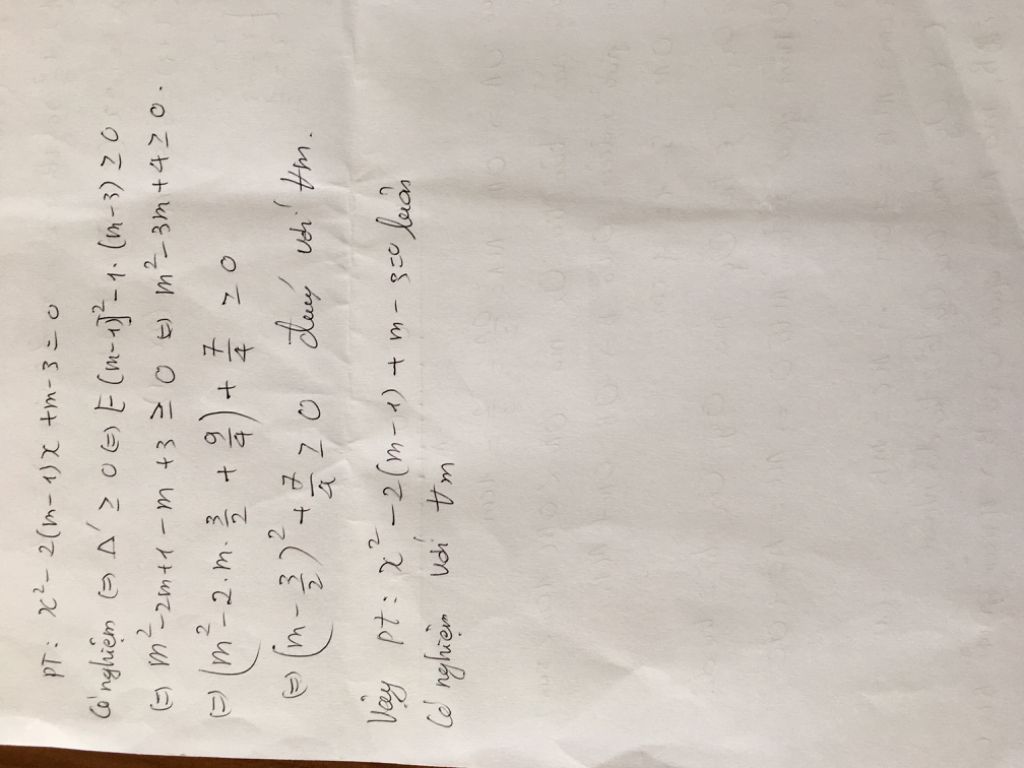 PT: x² - 2(m-1)x + m - 3 = 0
Có nghiệm ⇔ Δ' ≥ 0 ⇔ [-(m-1)]² - 1.(m-3) ≥ 0
⇔ m² - 2m + 1 - m + 3 ≥ 0 ⇔ m² - 3m + 4 ≥ 0.
⇔ (m² - 2.m.3/2 + 9/4) + 7/4 ≥ 0
⇔ (m - 3/2)² + 7/4 ≥ 0 đúng với ∀m.
Vậy PT: x² - 2(m-1) + m - 3 = 0 luôn
Có nghiệm với ∀m